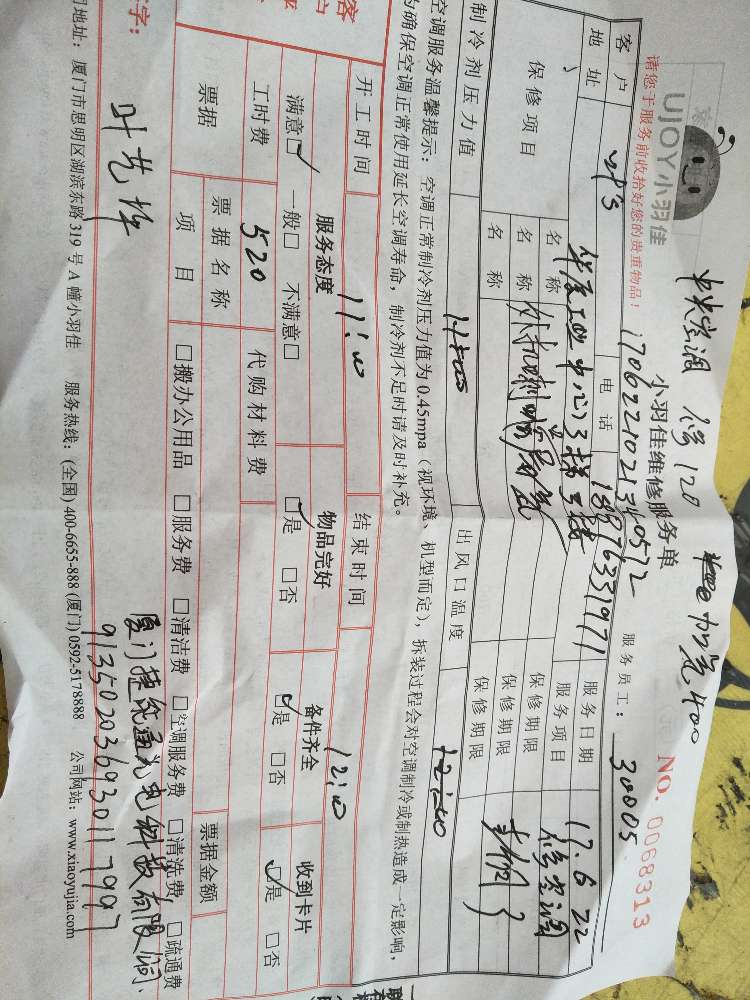 中央空调 修120 加氟400
UJOY小羽佳
小羽佳维修服务单
NO. 0068313
请您于服务前收拾好您的贵重物品!
1706221021340572
服务员工: 30005
客户 叶's 电话 18876331971 服务日期 17.6.22
地址 3楼 服务项目 修空调
保修项目 名称 保修期限
名称 保修期限
名称 保修期限
制冷剂压力值 出风口温度
空调服务温馨提示: 空调正常制冷剂压力值为0.45mpa(视环境、机型而定), 拆装过程会对空调制冷或制热造成一定影响,
确保空调正常使用延长空调寿命, 制冷剂不足时请及时补充。
开工时间 11:00 结束时间 12:00
服务态度 物品完好 备件齐全 收到卡片
满意☑ 一般□ 不满意□ ☑是 □否 ☑是 □否 ☑是 □否
工时费 520 代购材料费
票据 票据名称 票据金额
项目 □搬办公用品 □服务费 □清洁费 □空调服务费 □清洗费 □疏通费
厦门捷统通光电科技有限公司
913502036930117997
字: 叶艺华
地址: 厦门市思明区湖滨东路319号A幢小羽佳 服务热线: (全国) 400-6655-888 (厦门) 0592-5178888 公司网站: www.xiaoyujia.com